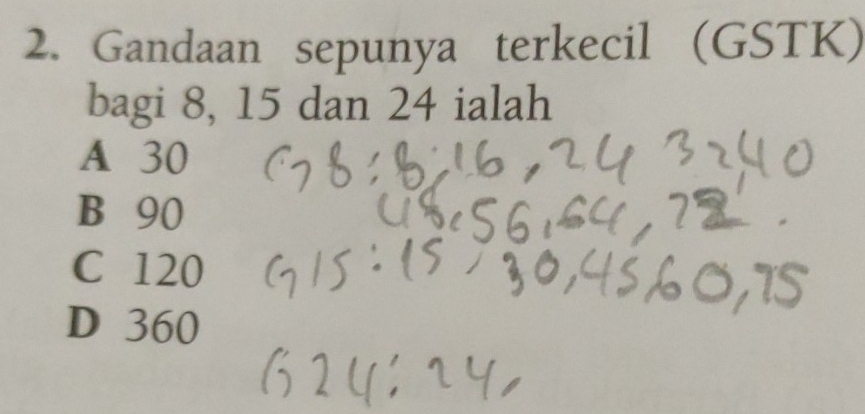 2. Gandaan sepunya terkecil (GSTK)
bagi 8, 15 dan 24 ialah
A 30
G 8 : 8, 16, 24 32, 40
B 90
48, 56, 64, 72 .
C 120
G 15 : 15, 30, 45, 60, 75
D 360
G 24 : 24,